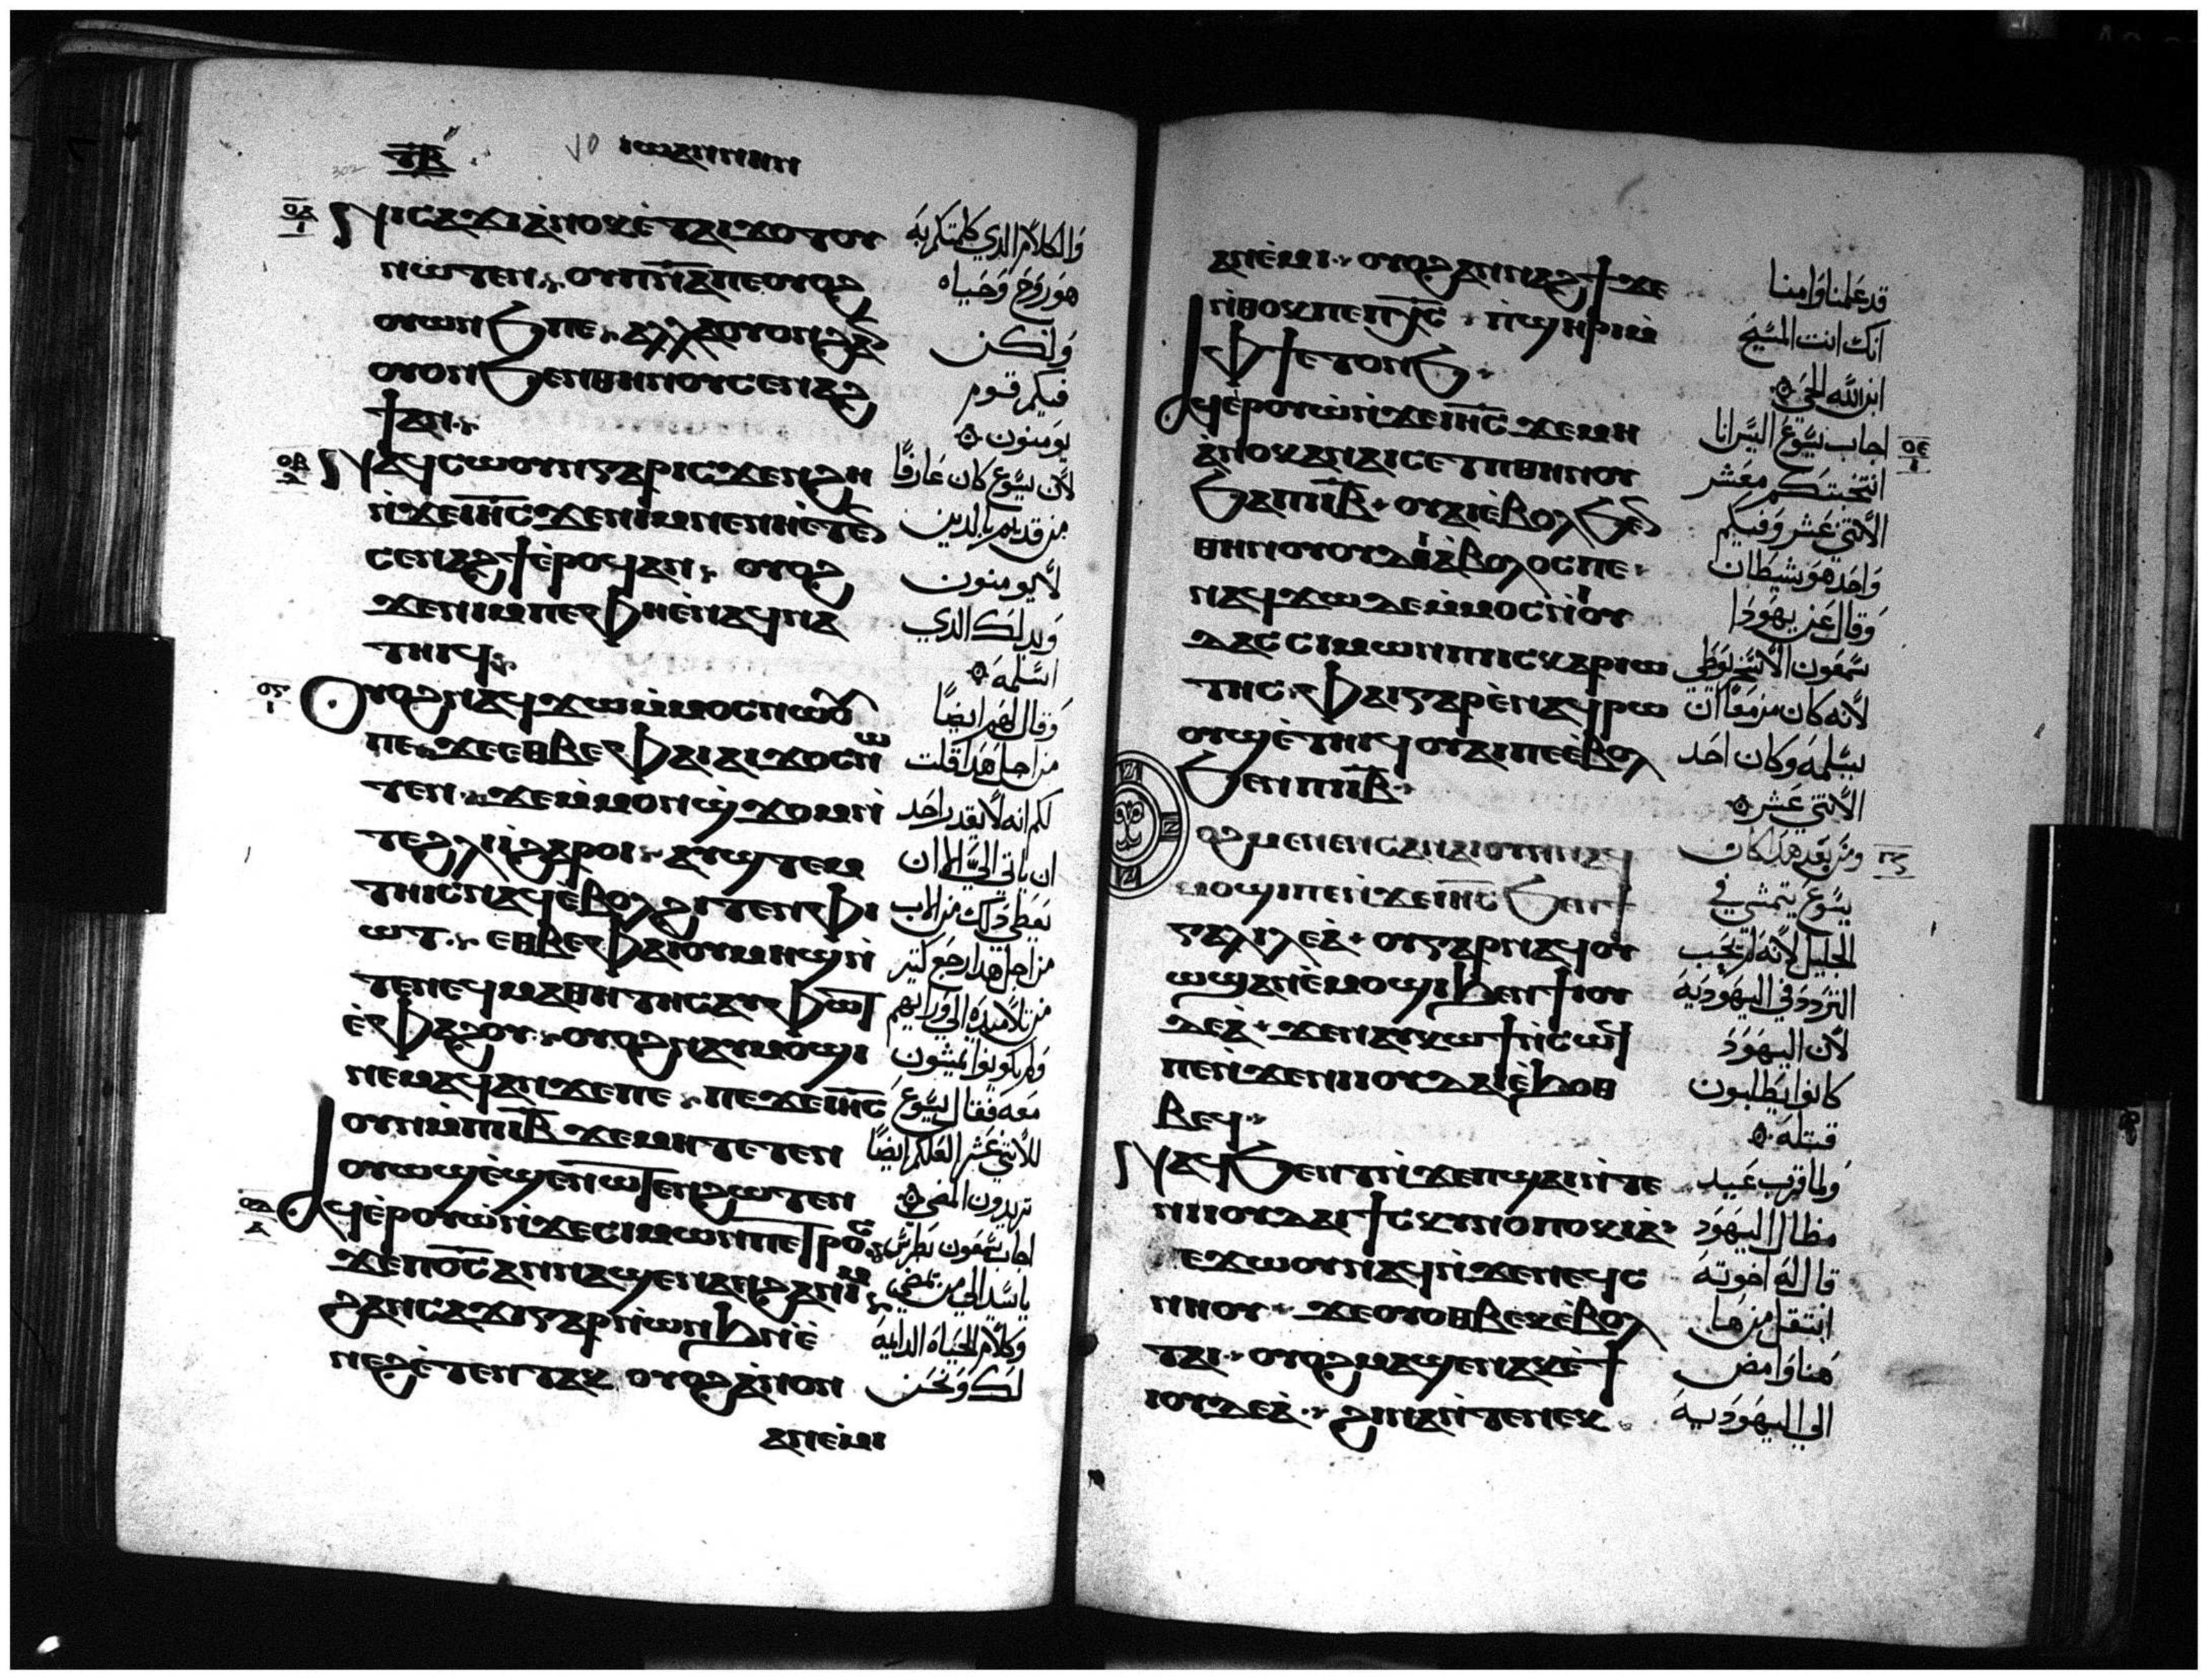 ⲧ̅ⲃ̅
ⲓⲱⲁⲛⲛⲏⲛ
ⲛⲓⲥⲁϫⲓ ⲁⲛⲟⲕ ⲉ̇ⲧⲁⲓϫⲟⲧⲟⲩ
ⲛⲱⲧⲉⲛ ⲟⲩⲡ̅ⲛ̅ⲁ̅ ⲡⲉ ⲟⲩⲟϩ
ⲟⲩⲱⲛϧ ⲡⲉ ⲁⲗⲗⲁ ⲟⲩⲟⲛ ϩⲁⲛ
ⲟⲩⲟⲛ ϧⲉⲛ ⲑⲏⲛⲟⲩ ⲥⲉⲛⲁϩ
ϯ ⲁⲛ
ⲛⲁϥⲥⲱⲟⲩⲛ ⲅⲁⲣ ⲓⲥϫⲉⲛ ϩⲏ
ⲛ̇ϫⲉ ⲓ̅ⲏ̅ⲥ̅ ϫⲉ ⲛⲓⲙ ⲛⲉ ⲛⲏ ⲉ̇ⲧⲉⲛ
ⲥⲉⲛⲁϩϯ ⲉ̇ⲣⲟϥ ⲁⲛ ⲟⲩⲟϩ
ϫⲉ ⲛⲓⲙ ⲡⲉ ⲫⲏ ⲉ̇ⲛⲁϥⲛⲁ
ⲧⲏⲓϥ
ⲟⲩⲟϩ ⲛⲁϥϫⲱ ⲙ̇ⲙⲟⲥ ⲛⲱⲟⲩ
ⲡⲉ ϫⲉ ⲉⲑⲃⲉ ⲫⲁⲓ ⲁⲓϫⲟⲥ ⲛⲱ
ⲧⲉⲛ ϫⲉ ⲙ̇ⲙⲟⲛ ϣϫⲟⲙ ⲛ̇
ⲧⲉ ϩⲗⲓ ⲓ̇ ϩⲁⲣⲟⲓ ⲁⲩϣⲧⲉⲙ
ⲧⲏⲓⲥ ⲛⲁϥ ⲉ̇ⲃⲟⲗ ϩⲓⲧⲉⲛ ⲫⲓ
ⲱⲧ ⲉⲑⲃⲉ ⲫⲁⲓ ⲟⲩⲙⲏϣ ⲛ̇
ⲧⲉ ⲛⲉϥⲙⲁⲑⲏⲧⲏⲥ ⲁⲩⲫⲱⲧ
ⲉ̇ⲫⲁϩⲟⲩ ⲟⲩⲟϩ ⲛⲁⲩⲙⲟϣⲓ
ⲛⲉⲙⲁϥ ⲁⲛ ϫⲉ ⲡⲉ ⲡⲉϫⲉ ⲓ̅ⲏ̅ⲥ̅
ⲟⲩⲛ ⲙ̇ⲡⲓⲓ̅ⲃ̅ ϫⲉ ⲙⲏ ⲧⲉⲧⲉⲛ
ⲟⲩⲱϣ ⲉ̇ϣⲉⲛⲱⲧⲉⲛ ϩⲱⲧⲉⲛ
ⲁϥⲉ̇ⲣⲟⲩⲱ̇ ⲛ̇ϫⲉ ⲥⲓⲙⲱⲛ ⲡⲉⲧⲣⲟⲥ
ϫⲉ ⲡ̅ⲟ̅ⲥ̅ ⲁⲛⲛⲁϣⲉⲛⲁⲛ ϩⲁ ⲛⲓⲙ
ϩⲁⲛⲥⲁϫⲓ ⲅⲁⲣ ⲛ̇ⲱⲛϧ ⲛ̇ⲉ̇
ⲛⲉϩ ⲉ̇ⲧⲉⲛⲧⲁⲕ ⲟⲩⲟϩ ⲁⲛⲟⲛ
ⲁⲛⲉ̇ⲙⲓ
والكلام الذي كلمتكم به
هو روح وحياه
ولكن
فيكم قوم
يومنون
لان يسوع كان عارفا
من قديم بالدين
لا يومنون
وبدلك الدي
اسلمه
وقال لهم ايضا
من اجل هدا قلت
لكم انه لا يقدر احد
ان ياتي الي الا ان
يعطي دلك من الاب
من اجل هدا رجع كتير
من تلاميده الي ورايهم
ولم يكونوا يمشون
معه فقال يسوع
للاتني عشر العلكم ايضا
تريدون المضي
اجاب سمعون بطرس
يا سيد الي من نمضي
وكلام الحياه الدايمه
لك ونحن
ⲁⲛⲉ̇ⲙⲓ ⲟⲩⲟϩ ⲁⲛⲛⲁϩϯ ϫⲉ
ⲛ̇ⲑⲟⲕ ⲡⲉ ⲡ̅ⲭ̅ⲥ̅ ⲡ̇ϣⲏⲣⲓ ⲙ̇
ⲫϯ ⲉⲧⲟⲛϧ
ⲁϥⲉ̇ⲣⲟⲩⲱ̇ ⲛ̇ϫⲉ ⲓ̅ⲏ̅ⲥ̅ ϫⲉ ⲙⲏ
ⲁⲛⲟⲕ ⲁⲛ ⲁⲓⲥⲉⲧⲡ ⲑⲏⲛⲟⲩ
ϧⲁ ⲡⲓⲓ̅ⲃ̅ ⲟⲩⲁⲓ ⲉ̇ⲃⲟⲗ ϧⲉⲛ
ⲑⲏⲛⲟⲩ ⲟⲩⲇⲓⲁ̇ⲃⲟⲗⲟⲥ ⲡⲉ
ⲛⲁϥϫⲱ ⲇⲉ ⲙ̇ⲙⲟⲥ ⲛ̇ⲓⲟⲩ
ⲇⲁⲥ ⲥⲓⲙⲱⲛ ⲡⲓⲥⲕⲁⲣⲓⲱ
ⲧⲏⲥ ⲫⲁⲓ ⲅⲁⲣ ⲉ̇ⲛⲁϥⲣⲱ
ⲟⲩϣ ⲉ̇ⲧⲏⲓϥ ⲟⲩⲁⲓ ⲡⲉ ⲉ̇ⲃⲟⲗ
ϧⲉⲛ ⲡⲓⲓ̅ⲃ̅
ⲟϩ ⲙⲉⲛⲉⲛⲥⲁ ⲛⲁⲓ ⲟⲩⲛ ⲛⲁϥ
ⲙⲟϣⲓ ⲡⲉ ⲛ̇ϫⲉ ⲓ̅ⲏ̅ⲥ̅ ϧⲉⲛ ϯ
ⲅⲁⲗⲓⲗⲉⲁ̇ ⲟⲩ ⲅⲁⲣ ⲛⲁϥⲟⲩ
ⲱϣ ⲁⲛ ⲉ̇ⲙⲟϣⲓ ϧⲉⲛ ϯⲓⲟⲩ
ⲇⲉⲁ̇ ϫⲉ ⲛⲁⲩⲕⲱϯ ⲛ̇ⲥⲱϥ
ⲡⲉ ⲛ̇ϫⲉ ⲛⲓⲓⲟⲩⲇⲁⲓ ⲉ̇ϧⲟⲑ
ⲃⲉϥ
ⲛⲁϥϧⲉⲛⲧ ⲛ̇ϫⲉ ⲡϣⲁⲓ ⲛ̇ⲧⲉ
ⲛⲓⲓⲟⲩⲇⲁⲓ ϯⲥⲕⲩⲛⲟⲡⲟⲕⲓⲁ̇
ⲉϫⲱⲟⲩ ⲛⲁϥ ⲛ̇ϫⲉ ⲛⲉϥⲥ
ⲛⲏⲟⲩ ϫⲉ ⲟⲩⲟⲑⲃⲉⲕ ⲉ̇ⲃⲟⲗ
ⲧⲁⲓ ⲟⲩⲟϩ ⲙⲁϣⲉⲛⲁⲕ ⲉ̇ϯ
ⲓⲟⲩⲇⲉⲁ̇ ϩⲓⲛⲁ ⲛ̇ⲧⲉ ⲛⲉⲕ
قد علمنا وامنا
انك انت المسيح
ابن الله الحي
اجاب يسوع اليس انا
انتخبتكم معشر
الاتني عشر وفيكم
واحد هو شيطان
وقال عن يهودا
سمعون الاسخريوطي
لانه كان مزمعا ان
يسلمه وكان احد
الاتني عشر
ومن بعد هدا كان
يسوع يتمشي في
الجليل لانه لم يحب
التردد في اليهوديه
لان اليهود
كانوا يطلبون
قتله
ولما قرب عيد
مظال اليهود
قال له اخوته
انتقل من ها
هنا وامض
الي اليهوديه